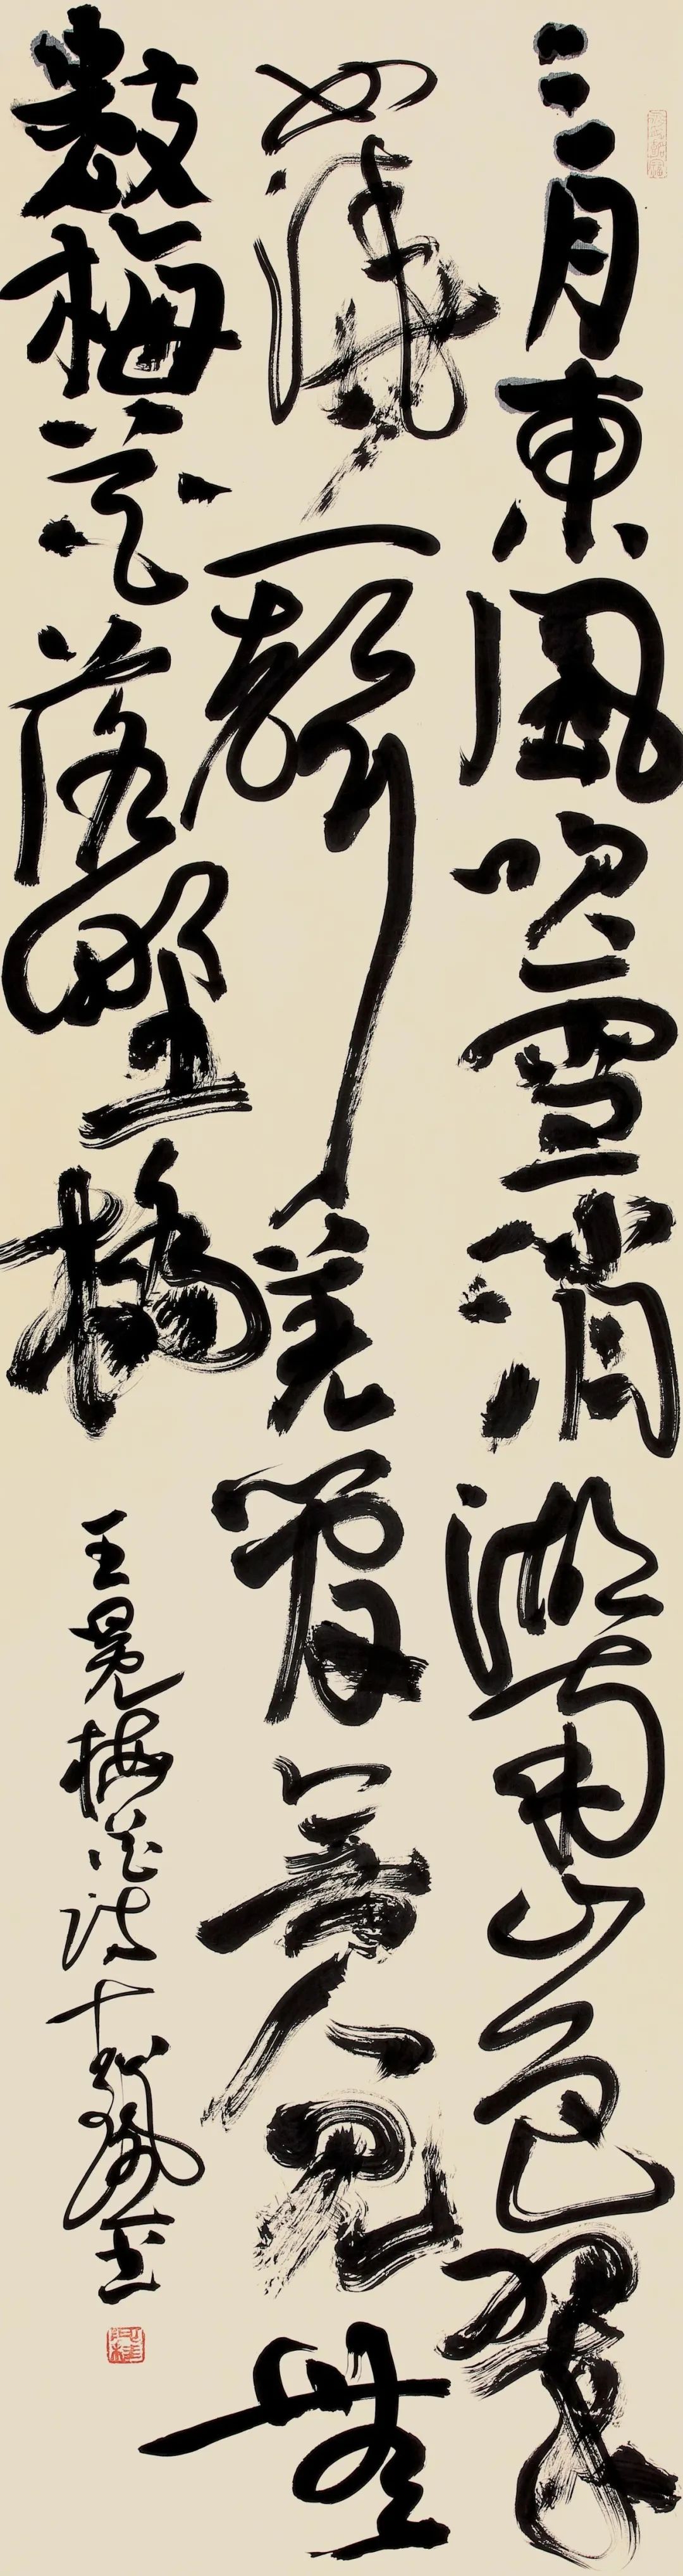 三月東風吹雪消湖南山色翠
如澆一聲羌管無人見無
數梅花落野橋
王冕梅花詩